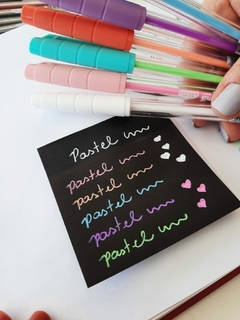 Pastel
Pastel
pastel
pastel
pastel
pastel